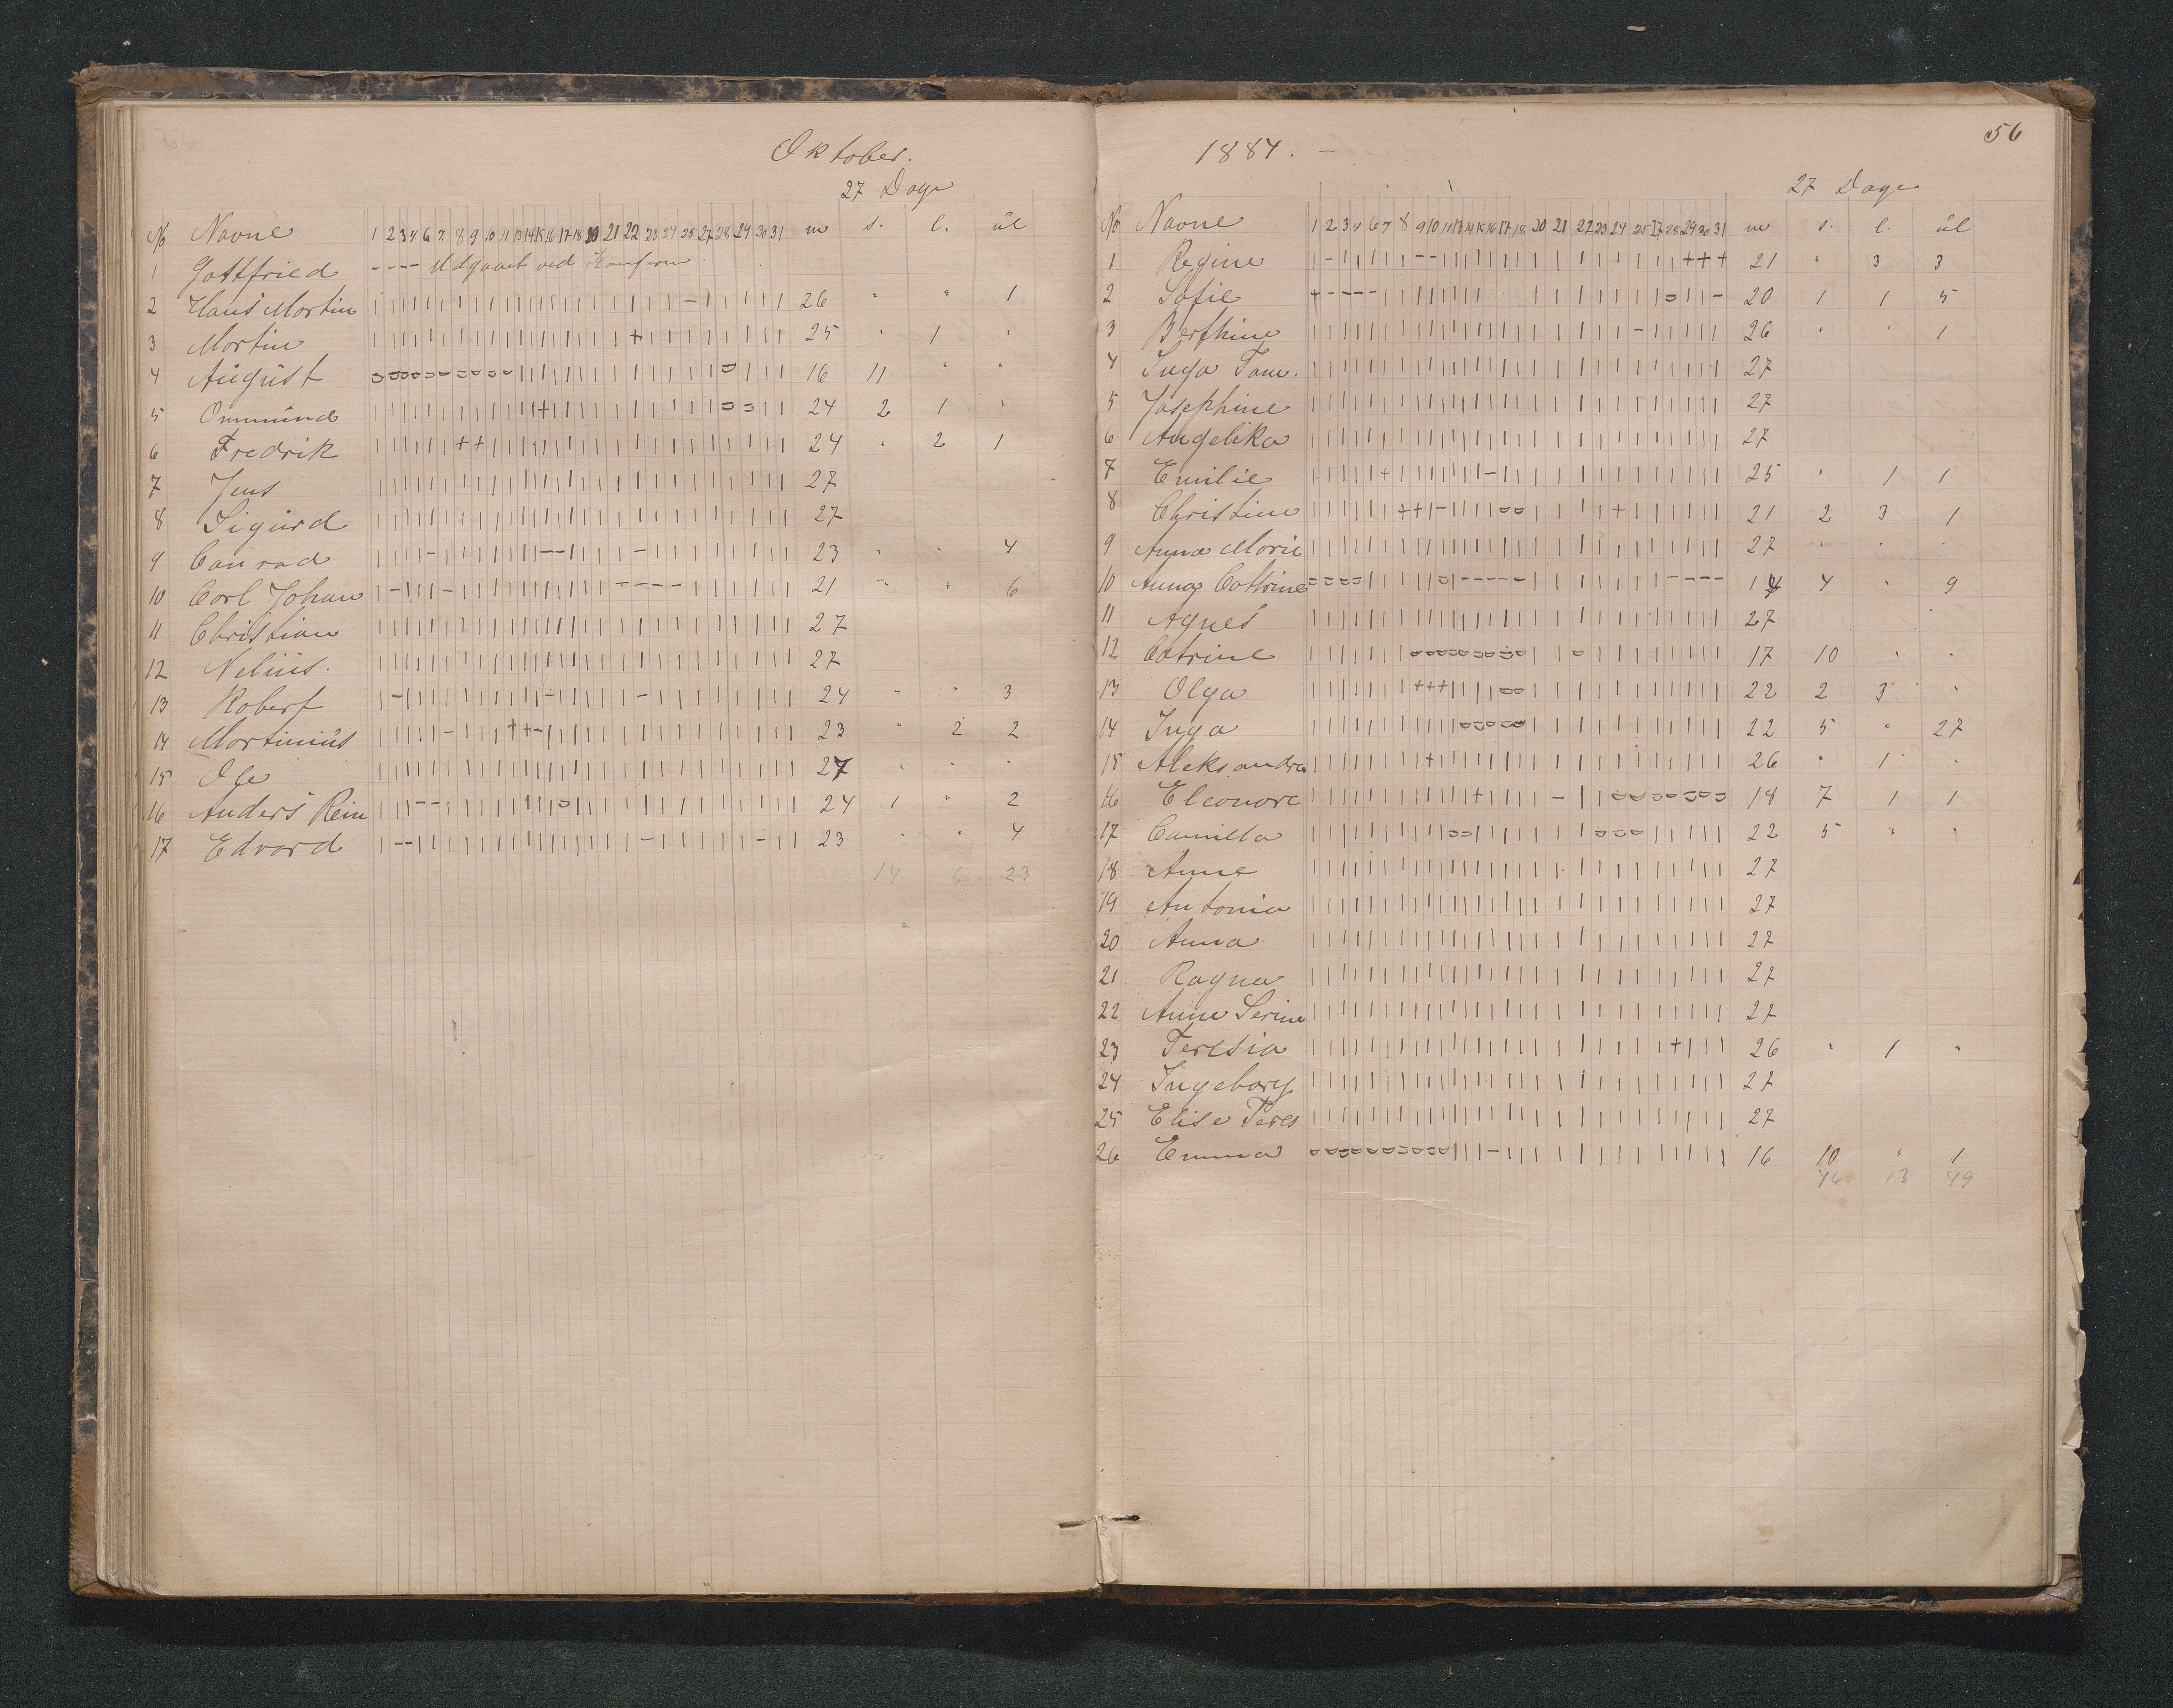 Oktober.
27 Dage
No Navne 1 2 3 4 6 7 8 9 10 11 13 14 15 16 17 18 20 21 22 23 24 25 27 28 29 30 31 m s. l. ul
1 Gottfried - - - - Udgaaet ved Konfirm.
2 Hans Martin 26 " " 1
3 Martin 25 " 1 "
4 August 16 11 " "
5 Ommund 24 2 1 "
6 Fredrik 24 " 2 1
7 Jens 27
8 Sigurd 27
9 Conrad 23 " " 4
10 Carl Johan 21 " " 6
11 Christian 27
12 Nelius. 27
13 Robert 24 " " 3
14 Martinius 23 " 2 2
15 Ole 27 " " "
16 Anders Rein 24 1 " 2
17 Edvard 23 " " 4
14 6 23
56
1884. -
27 Dage
No Navne 1 2 3 4 6 7 8 9 10 11 13 14 15 16 17 18 20 21 22 23 24 25 27 28 29 30 31 m s. l. ul
1 Regine 21 " 3 3
2 Sofie 20 1 1 5
3 Berthine 26 " " 1
4 Inga Tom. 27
5 Josephine 27
6 Angelika 27
7 Emilie 25 " 1 1
8 Christine 21 2 3 1
9 Anna Marie 27 " " "
10 Anna Cathrine 14 4 " 9
11 Agnes 27
12 Catrine 17 10 " "
13 Olga 22 2 3 "
14 Inga 22 5 " 27
15 Aleksandra 26 " 1 "
16 Eleonore 18 7 1 1
17 Camilla 22 5 " "
18 Anne 27
19 Antonia 27
20 Anna 27
21 Ragna 27
22 Anne Serine 27
23 Teresia 26 " 1 "
24 Ingeborg 27
25 Elise Teres 27
26 Emma 16 10 " 1
46 13 49